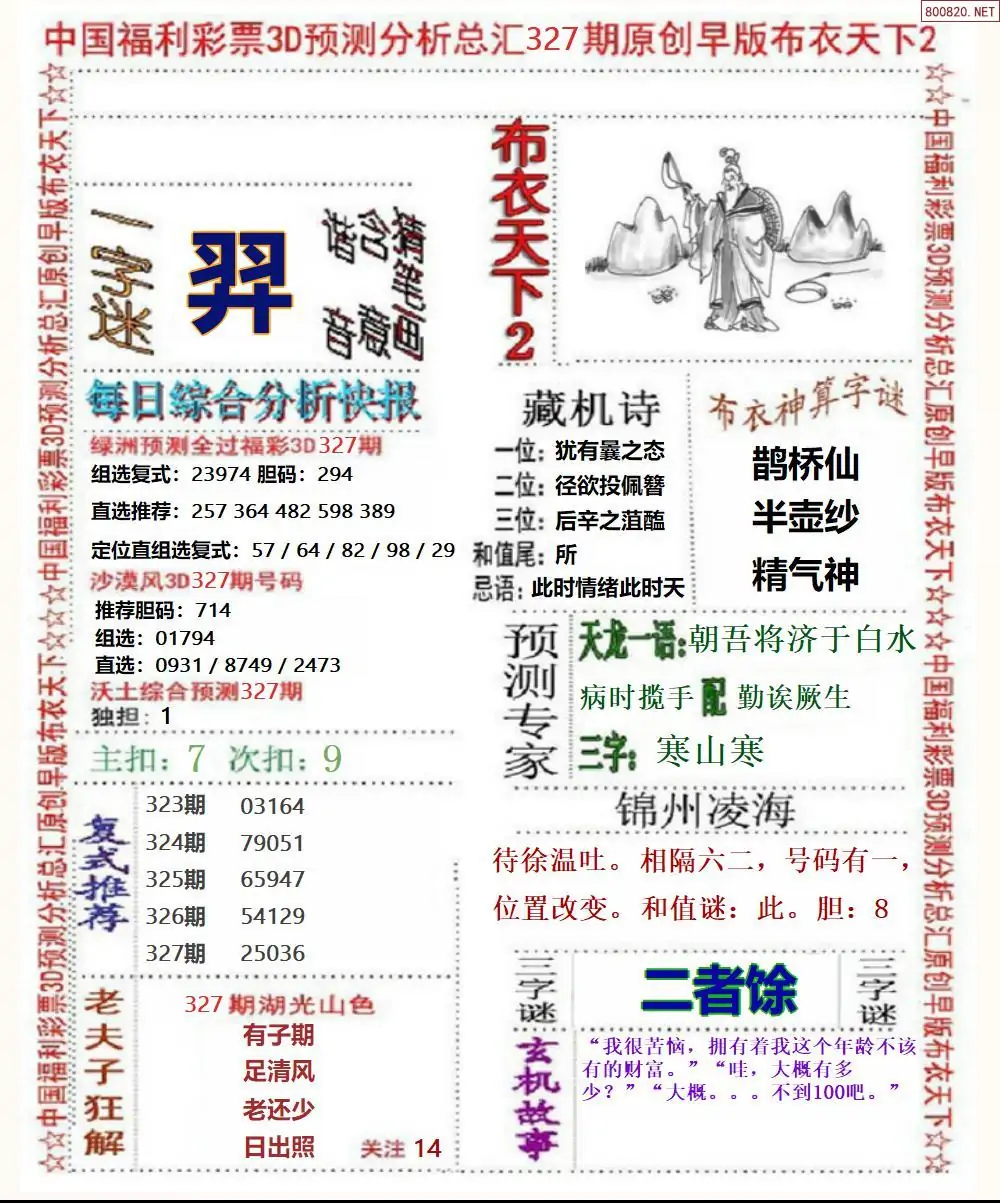 800820.NET
中国福利彩票3D预测分析总汇327期原创早版布衣天下2
中国福利彩票3D预测分析总汇原创早版布衣天下
中国福利彩票3D预测分析总汇原创早版布衣天下
一字迷
羿
猜笔画
含意
谐音
布衣天下2
每日综合分析快报
绿洲预测全过福彩3D327期
组选复式：23974 胆码：294
直选推荐：257 364 482 598 389
定位直组选复式：57 / 64 / 82 / 98 / 29
沙漠风3D327期号码
推荐胆码：714
组选：01794
直选：0931 / 8749 / 2473
沃土综合预测327期
独担：1
主扣：7 次扣：9
复式推荐
323期 03164
324期 79051
325期 65947
326期 54129
327期 25036
老夫子狂解
327期湖光山色
有子期
足清风
老还少
日出照 关注 14
藏机诗
一位：犹有曩之态
二位：径欲投佩簪
三位：后辛之菹醢
和值尾：所
忌语：此时情绪此时天
布衣神算字谜
鹊桥仙
半壶纱
精气神
预测专家
天龙一语：朝吾将济于白水
病时揽手 配 勤诶厥生
三字：寒山寒
锦州凌海
待徐温吐。相隔六二，号码有一，
位置改变。和值谜：此。胆：8
三字谜
二者馀
三字谜
玄机故事
“我很苦恼，拥有着我这个年龄不该
有的财富。”“哇，大概有多
少？”“大概。。。不到100吧。”
中国福利彩票3D预测分析总汇原创早版布衣天下
中国福利彩票3D预测分析总汇原创早版布衣天下